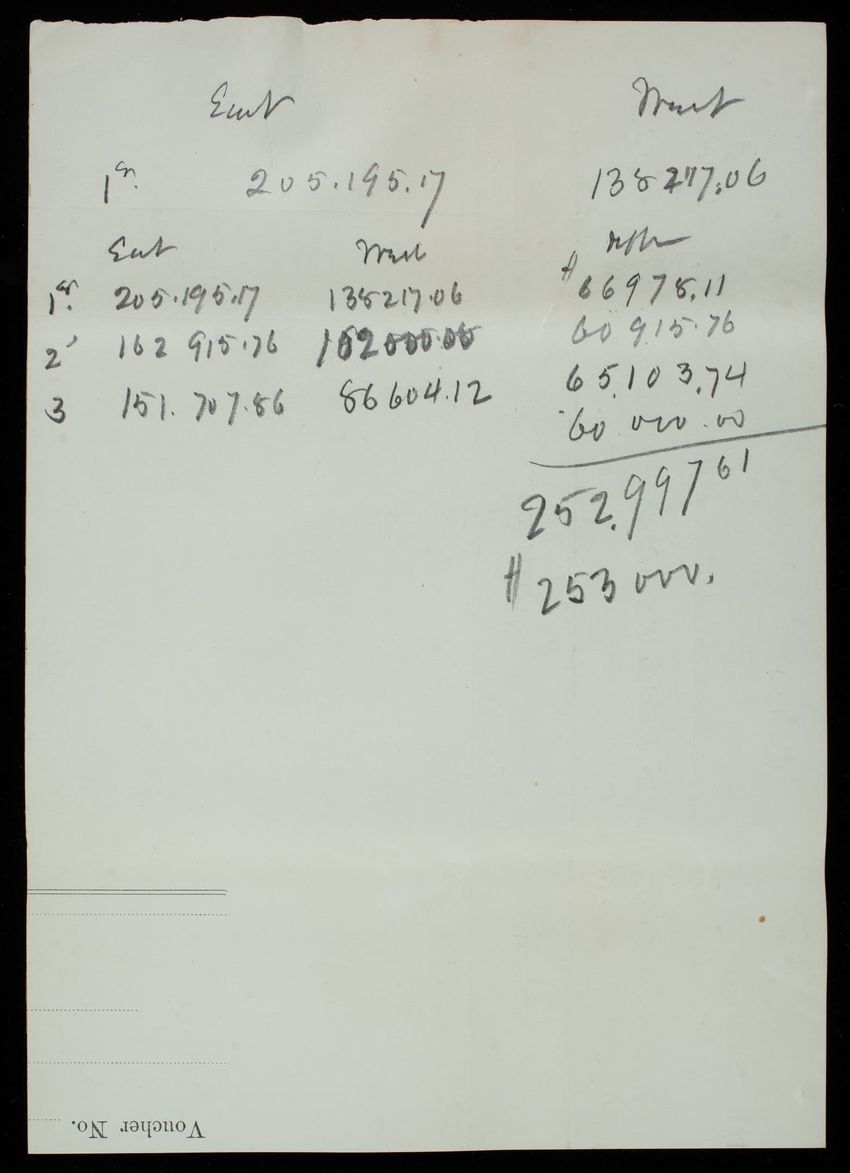 East West
1st. 205.195.17 138217.06
East West Diffce
1st. 205.195.17 138217.06 $66978.11
2d 162 915.76 102000.00 60 915.76
3 151.707.86 86604.12 65.103.74
60.000.00
252.997 61
$253000.
Voucher No.